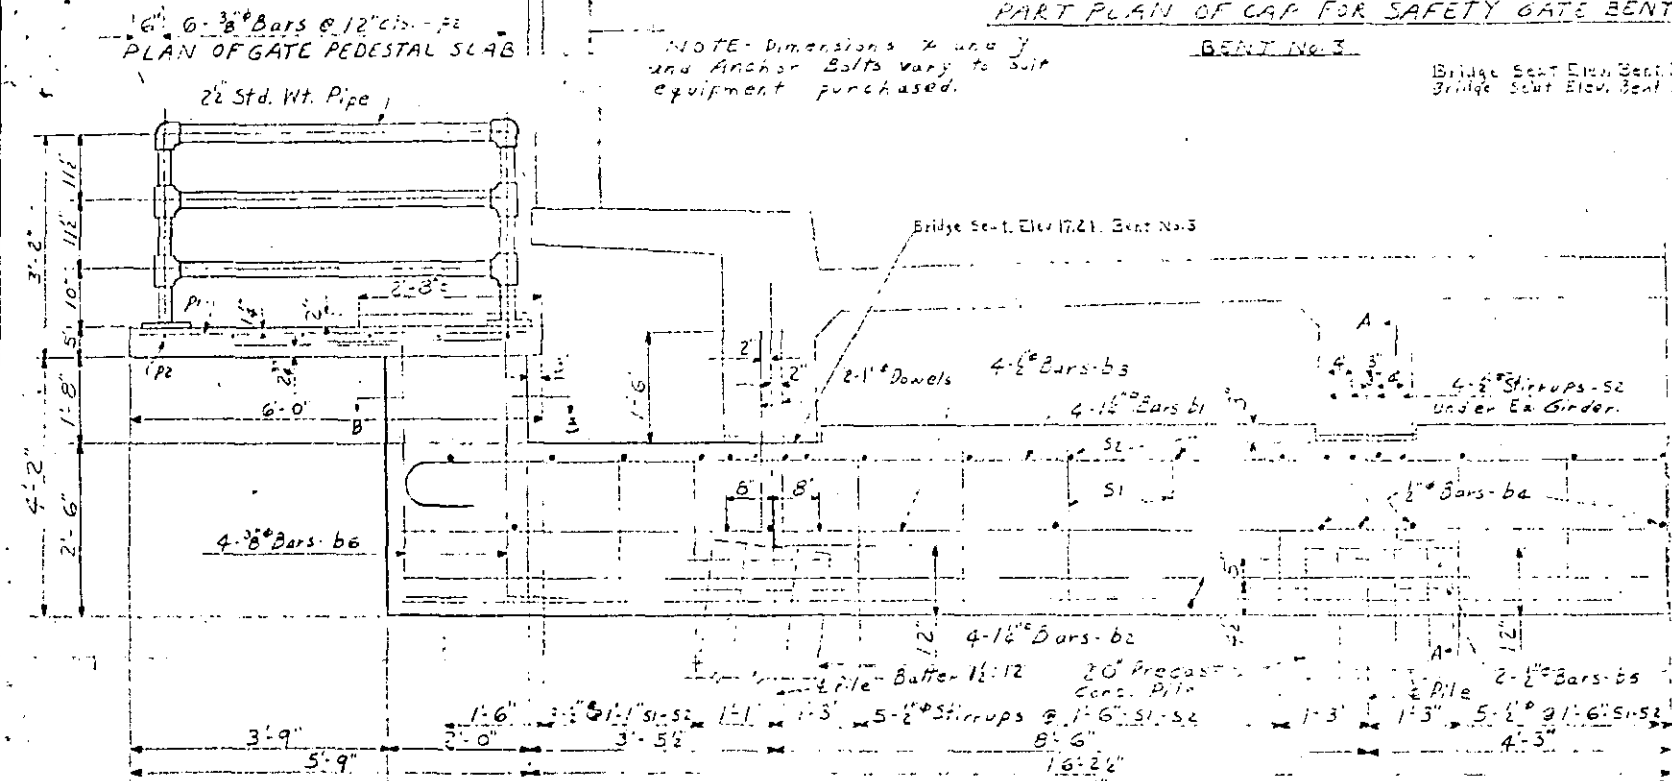 6" 6-3/8"ø Bars @ 12" ctrs.-p2
PLAN OF GATE PEDESTAL SLAB
PART PLAN OF CAP FOR SAFETY GATE BENT
BENT No. 3
NOTE- Dimensions x and y
and Anchor Bolts vary to suit
equipment purchased.
Bridge Seat Elev. Bent
Bridge Seat Elev. Bent
2½ Std. Wt. Pipe
11½"
11½"
3'-2"
10"
5"
2'-8"
p1
p2
Bridge Seat Elev 17.21 Bent No.3
6'-0"
1'-8"
4'-2"
2'-6"
B
1'-6"
2"
2"
2-1"ø Dowels
4-½"ø Bars-b3
4-1¼"ø Bars b1
A
4" 3" 4"
4-½"ø Stirrups-S2
Under Ea. Girder.
S2
S1
8" 8"
½"ø Bars-b4
4-3/8"ø Bars-b6
12"
4-1¼"ø Bars-b2
12"
A
℄ Pile
Batter 1½:12
20" Precast
Conc. Pile
℄ Pile
2-½"ø Bars-b5
1'-6"
1'-1" S1-S2
1'-1"
1'-3"
5-½"ø Stirrups @ 1'-6" S1-S2
1'-3"
1'-3"
5-½"ø @ 1'-6" S1-S2
3'-9"
2'-0"
3'-5½"
8'-6"
4'-3"
5'-9"
16'-2½"